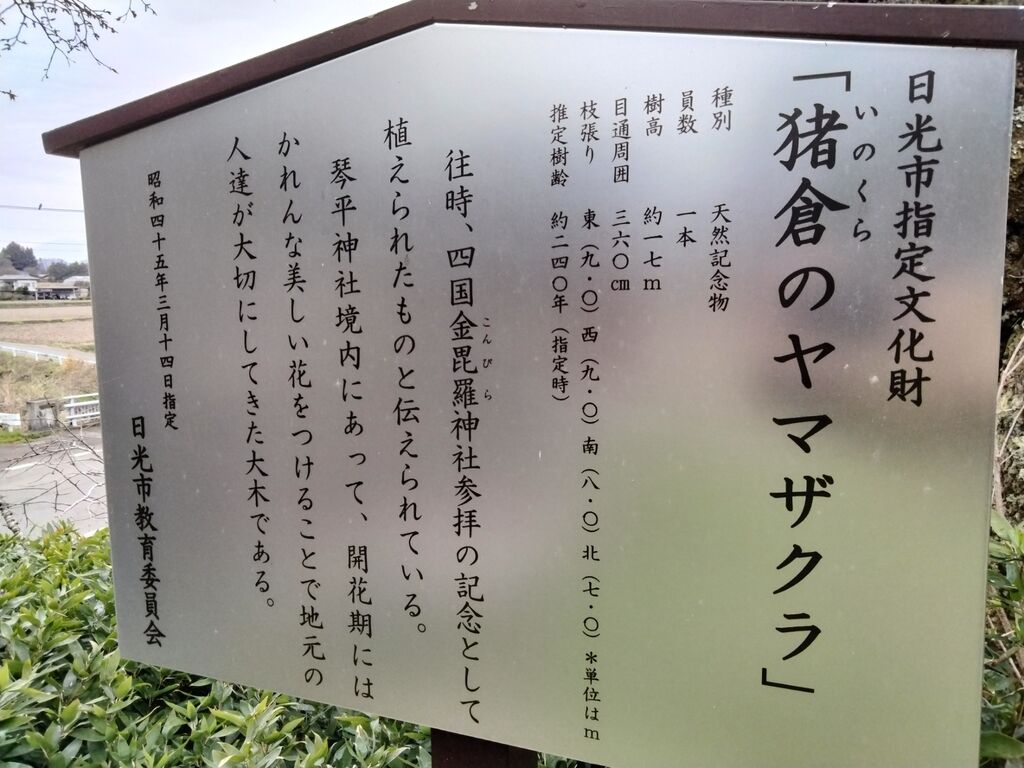 日光市指定文化財
「猪倉のヤマザクラ」
いのくら
種別 天然記念物
員数 一本
樹高 約一七m
目通周囲 三六〇cm
枝張り 東（九・〇）西（九・〇）南（八・〇）北（七・〇）＊単位はm
推定樹齢 約二四〇年（指定時）
往時、四国金毘羅神社参拝の記念として
こんぴら
植えられたものと伝えられている。
琴平神社境内にあって、開花期には
かれんな美しい花をつけることで地元の
人達が大切にしてきた大木である。
昭和四十五年三月十四日指定
日光市教育委員会